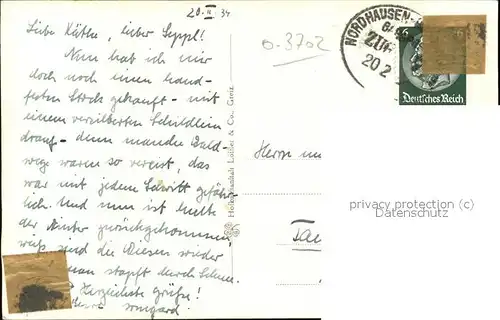 20. II 34
Liebe Käthe, lieber Seppl!
Nun hab ich mir
doch noch einen hand-
festen Stock gekauft - mit
einem versilberten Schildlein
drauf - denn manche Wald-
wege waren so vereist, das
war mit jedem Schritt gefähr-
lich. Und nun ist heute
der Winter zurückgekommen,
weiß sind die Wiesen wieder
man stapft durch Schnee.
Herzlichste Grüße!
Irmgard.
0-3702
NORDHAUSEN-
ZUG
20 2
6
Deutsches Reich
& Co., Greiz
Herrn
privacy protection (c)
Datenschutz